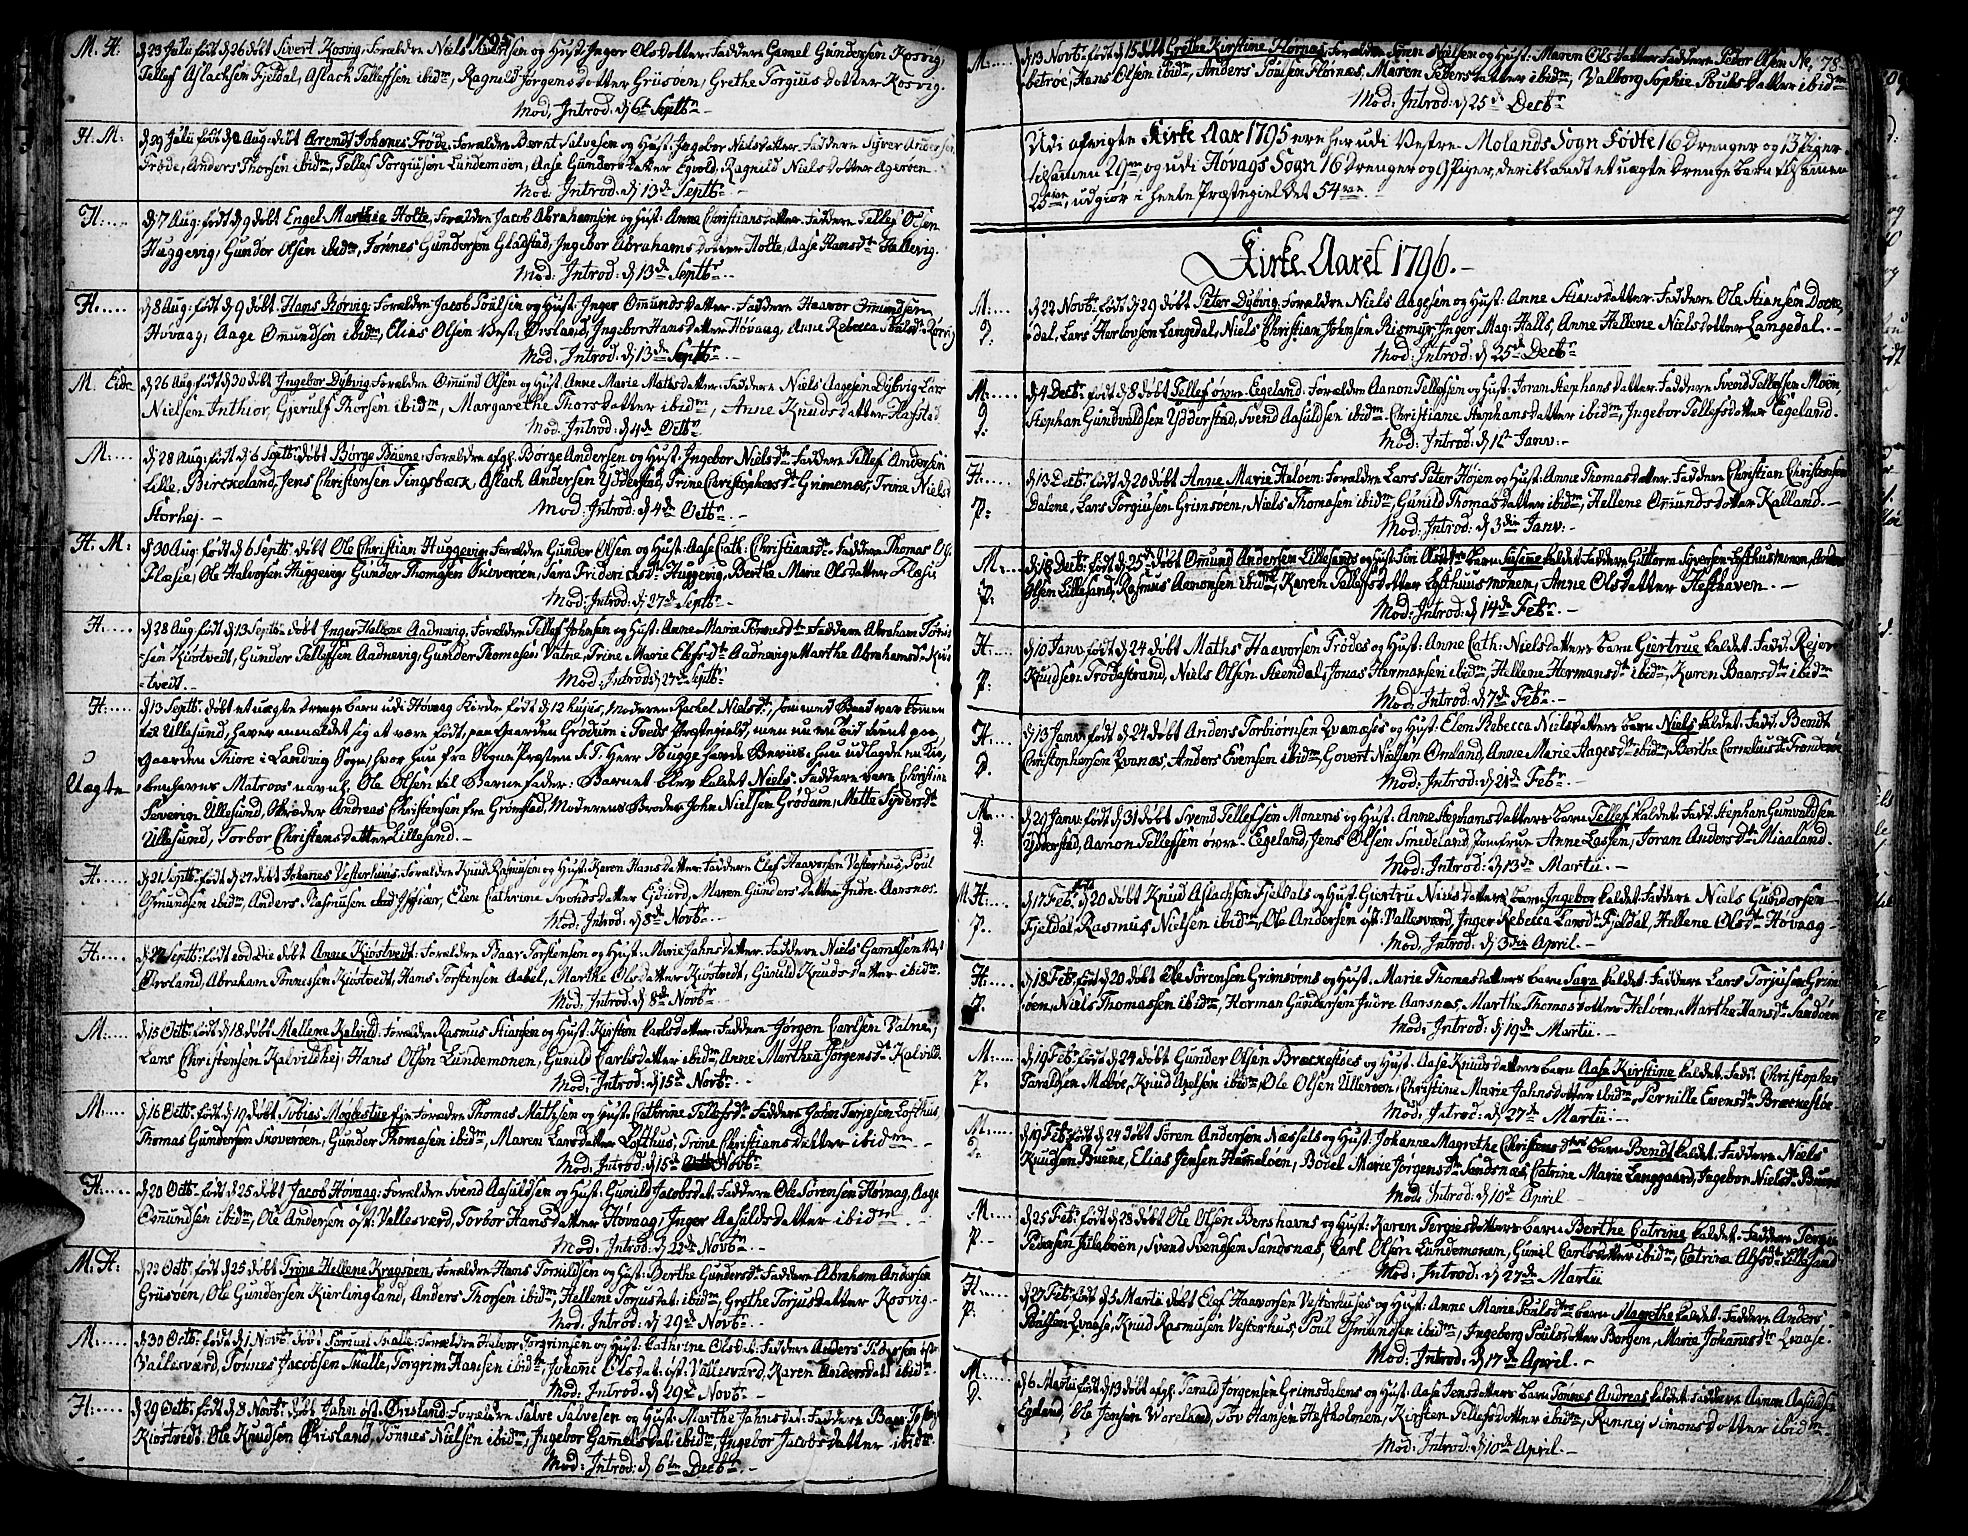 1795
M. H. d 23 Julii født d 26 døbt Sivert Kosvig, Forældre Niels Sivertsen og Hust: Inger Olsdatter Faddere Gamel Gundersen Kosvig,
Tellef Aslachsen Fjeldal, Aslach Tellefsen ibidm, Ragnild Jørgensdatter Grusøen, Grethe Torgiusdatter Kosvig.
Mod: Introd: d 6te Septbr
H. M. d 29 Julii født d 2 Aug: døbt Arendt Johannes Frøde. Forældre Bernt Salvesen og Hust: Ingebor Nielsdatter. Faddere Syver Andersen
Frøde, Anders Thorsen ibidm, Tellef Torgiusen Lundemoen, Aase Gundersdatter Egvold, Ragnild Nielsdatter Agerøen
Mod: Introd: d 13de Septbr
H. d 7 Aug: født d 9 døbt Engel Marthea Holte, Forældre Jacob Abrahamsen og Hust: Anne Christiansdatter. Faddere Tellef Olsen
Huggevig, Gunder Olsen ibidm, Tønnes Gundersen Gladstad, Ingebor Abrahamsdatter Holte, Aase Hansdtr Hallevig.
Mod: Introd: d 13de Septbr
H. d 8 Aug: født d 9 døbt Hans Rørvig: Forældre Jacob Poulsen og Hust: Inger Omundsdatter. Faddere Haavor Omundsen
Hovaag, Aage Omundsen ibidm, Elias Olsen Vest: Ørsland, Ingebor Hansdatter Høvaag, Anne Rebecca Poulsdtr Rørvig
Mod: Introd: d 13de Septbr
M. Eide d 26 Aug: født d 30 døbt Ingebor Dybvig. Forældre Omund Olsen og Hust: Anne Marie Mathsdatter: Faddere Niels Aagesen Dybvig Lars
Nielsen Inthior, Gjerulf Thorsen ibidm, Margarethe Thorsdatter ibidm, Anne Knudsdatter Hafstad
Mod: Introd: d 4de Octbr
M. d 28 Aug: født d 6 Septbr: døbt Børge Buene: Forældre afg: Børge Andersen og Hust: Ingebor Nielsdtr: Faddere Tellef Andersen
Lille, Birckeland, Jens Christensen Tingsback, Aslach Andersen Ydderstad, Trine Christophersdtr Grimenes, Trine Niels
Storhej. Mod: Introd: d 4de Octbr
H. M: d 30 Aug: født d 6 Septbr: døbt Ole Christian Huggevig. Forældre Gunder Olsen og Hust: Aase Cath: Christiansdtr. Faddere Thomas Ols:
Flæsie, Ole Halvorsen Huggevig, Gunder Thomasen Skoverøen, Sara Friderichsdtr Huggevig, Berthe Marie Olsdatter Flæsie
Mod: Introd: d 27de Septbr
H. d 28 Aug: født d 13 Septbr: døbt Inger Helene Aadnevig, Forældre Tellef Johnsen og Hust: Anne Marie Tønnesdtr Faddere Abraham Tønnis
sen Kiøstvedt, Gunder Tellefsen Aadnevig, Gunder Thomasen Vatne, Trine Marie Elefsdtr Aadnevig, Marthe Abrahamsd: Kiøs
tvedt. Mod: Introd: d 27de Septbr
H. Uægte d 13 Septbr: døbt et uægte Drenge Barn udi Høvaag Kirke, født d 12 hujus, Moderen Rachel Nielsdtr, som med Baad var kommen
til Ullesund, haver anmældet sig at være født, paa Gaarden Grødum i Tveds Præstegield, men nu en Tid tient paa
Gaarden Thiore i Landvig Sogn, hvor hun fra Sogne Præsten S.T. Herr Bugge havde Beviis, Hun udlagde en Kiø
benhavns Matroos navnl: Ole Olsen til Barnefader: Barnet blev kaldet Niels. Faddere vare Christian
Severin Ullesund, Skræder Andreas Christensen fra Grømstad, Moderens Broder John Nielsen Grødum, Mette Syversdtr
Ullesund, Torbor Christensdatter Lillesand.
H. d 21 Septbr: født d 27 døbt Johanes Vesterhuus. Forældre Knud Rasmusen og Hust: Karen Hansdatter. Faddere Elef Haavorsen Vesterhus, Poul
Osmundsen ibidm, Anders Rasmusen, Elen Cathrine Svendsdatter Gjøiord, Maren Gundersdatter Indre Aarsnæs.
Mod: Introd: d 8de Novbr
H. d 24 Septbr: født eod: die døbt Anne Kiøstvedt: Forældre Baar Torstensen og Hust: Marie Jahnsdatter. Faddere Niels Gamelsen Vest:
Ørsland, Abraham Tønnessen Kiøstvedt, Hans Torstensen Aabel, Marthe Olsdatter Kiøstvedt, Gunild Knudsdatter ibidm
Mod: Introd: d 8de Novbr
M. d 15 Octbr: født d 18 døbt Mallene Kalvild. Forældre Rasmus Stiansen og Hust: Kirsten Carlsdatter. Faddere Jørgen Carlsen Vatne,
Lars Christensen Kalvildhej, Hans Olsen Lundemonen, Gunild Carlsdatter ibidm, Anne Marthea Jørgensdtr Kalvild.
Mod: Introd: d 15de Novbr
M. d 16 Octbr: født d 19 døbt Tobias Møglestue. Forældre Thomas Mathisen og Hust: Cathrine Tellefsdtr. Faddere John Tarjesen Lofthus,
Thomas Gundersen Skoverøen, Gunder Thomasen ibidm, Maren Larsdatter Lofthus, Trine Christiansdatter ibidm
Mod: Introd: d 15de Novbr
H. d 20 Octbr: født d 25 døbt Jacob Høvaag: Forældre Svend Aasuldsen og Hust: Gunild Jacobsdat: Faddere Ole Sørensen Høvaag, Aage
Osmundsen ibidm, Ole Andersen øst: Vallesværd, Torbor Hansdatter Hovaag, Inger Aasuldsdatter ibidm
Mod: Introd: d 22de Novbr
M. H: d 23 Octbr: født d 25 døbt Trine Hellene Kragsøen. Forældre Hans Torkildsen og Hust: Berthe Gundersdtr Faddere Abraham Andersen
Grusøen, Ole Gundersen Kierlingland, Anders Thorsen ibidm, Hellene Torjusdat: ibidm, Grethe Torjusdatter Kosvig.
Mod: Introd: d 29de Novbr
M. d 30 Octbr: født d 1 Novbr: døbt Samuel Skalle: Forældre Halvor Torgrimsen og Hust: Cathrine Olsdat: Faddere Anders Pedersen øst:
Vallesværd, Tønnes Jacobsen Skalle, Torgrim Hansen ibidm, Johane Olsdat: øst: Vallesværd, Karen Andersdat: ibidm
Mod: Introd: d 29de Novbr
H. d 29 Octbr: født d 8 Novbr: døbt Jahn øst: Ørisland: Forældre Salve Salvesen og Hust: Marthe Jahnsdat: Faddere Baar Tolst
Kiøstvedt, Ole Knudsen Ørisland, Tønnes Nielsen ibidm, Ingebor Gamelsdat: ibidm, Ingebor Jacobsdatter ibidm
Mod: Introd: d 6ten Decbr
78
M. d 13 Novbr: født d 15 døbt Grethe Kirstine Flørnæs, Forældre Søren Nielsen og Hust: Maren Olsdatter Faddere Peder Olsen Ne,
betroe, Hans Olsen ibidm, Anders Poulsen Flørnæs, Maren Pedersdatter ibidm, Valborg Sophie Poulsdatter ibidm
Mod: Introd: d 25de Decbr
Udi afvigte Kirke Aar 1795 ere her udi Vestre Molands Sogn Fødte 16 Drenger og 13 Piger
tilsamen 29ve, og udi Høvags Sogn 16 Drenger og 9 Piger, deriblandt et uægte Drenge Barn tilsamen
25ve, udgiør i heele Præstegieldet 54ve
Kirke Aaret 1796.
M. D: d 22 Novbr: født d 29 døbt Peter Dybvig. Forældre Niels Aagesen og Hust: Anne Stiansdatter. Faddere Ole Stiansen Docke,
dal, Lars Herlovsen Langedal, Niels Christian Johnsen Rismyr, Inger Mag: Halls, Anne Hellene Nielsdatter Langedal.
Mod: Introd: d 25de Decbr
M. D: d 4 Decbr: født d 8 døbt Tellef øvre Egeland. Forældre Aanon Tellefsen og Hust: Joran Stephansdatter. Faddere Svend Tellefsen Moen,
Stephan Gundvaldsen Ydderstad, Svend Aasuldsen ibidm. Christiane Stephansdatter ibidm, Ingebor Tellefsdatter Egeland.
Mod: Introd: d 1te Janv:
H. P: d 13 Decbr: født d 20 døbt Anne Marie Haløen: Forældre Lars Peter Höjen og Hust: Anne Thomasdatter. Faddere Christian Christensen
Dalene, Lars Torgiusen Grimsøen, Niels Thomasen ibidm, Gunild Thomasdatter ibidm, Hellene Omundsdatter Kalland.
Mod: Introd: d 3die Janv:
M. P: d 18 Decbr: født d 25 døbt Omund Andersen Lillesands og Hust: Siri Olsdtrs Barn Susanne kaldet. Faddere Guttorm Syversen Lofthusmonen, Anders
Olsen Lillesand, Rasmus Aanonsen ibidm, Karen Tellefsdatter Lofthuusmonen, Anne Olsdatter Hesthaven
Mod: Introd: d 14de Febr
H. P. d 10 Janv: født d 24 døbt Maths Haavorsen Frødes og Hust: Anne Cath: Nielsdatters Barn Giertrue kaldet. Fadd: Rejer
Knudsen Frødestrand, Niels Olsen Steendal, Jonas Hermansen ibidm, Hellene Hermansdtr ibidm, Karen Baarsdtr ibidm
Mod: Introd: d 7de Febr
H. D. d 13 Janv: født d 24 døbt Anders Torbiørnsen Qvanæses og Hust: Elen Rebecca Nielsdatters Barn Niels kaldet. Fadd: Bendt
Christophersen Qvanæs, Anders Evensen ibidm, Govert Nielsen Omland, Anne Marie Aagesdtr ibidm, Berthe Corneliusd: Trøndøen
Mod: Introd: d 21de Febr
M. D: d 29 Janv: født d 31 døbt Svend Tellefsen Monens og Hust: Anne Stephansdatters barn Tellef kaldet. Fadd: Stephan Gunvaldsen
Ydderstad, Aanon Tellefsen øvre Egeland, Jens Olsen Smedeland, Jomfrue Anne Lassen, Joran Andersdtr Miaaland.
Mod: Introd: d 13de Martii
M H. P. d 17 Febr: født d 20 døbt Knud Aslachsen Fjeldals og Hust: Giertru Nielsdatters barn Ingebor kaldet. Faddere Niels Gundersen
Fjeldal, Rasmus Nielsen ibidm, Ole Andersen øst: Vallesværd, Inger Rebecca Larsdtr Fjeldal, Hellene Olsdtr Høvaag
Mod: Introd: d 3die April
H. P. d 18 Febr: født d 20 døbt Ole Sørensen Grimsøens og Hust: Marie Thomasdatters barn Sara kaldet. Faddere Lars Torjusen Grim
øen, Niels Thomassen ibidm, Herman Gundersen Indre Aarsnæs, Marthe Thomasdatter Heløen, Marthe Hansdtr Sandøen
Mod: Introd: d 19de Martii
M: P. d 19 Febr: født d 24 døbt Gunder Olsen Brækkestøes og Hust: Aase Knudsdatters barn Aase Kirstine kaldet. Fadd: Christopher
Taraldsen Maboe, Knud Axelsen ibidm, Ole Olsen Ullerøen, Christine Marie Jahnsdatter ibidm, Pernille Evensdtr Brækkestøe
Mod: Introd: d 27de Martii
M. D: d 19 Febr: født d 24 døbt Søren Andersen Næssets og Hust: Johanne Magrethe Christensdtrs barn Bendt kaldet. Faddere Niels
Knudsen Buene, Elias Jensen Hammeløen, Bodel Marie Jørgensdtr Sandsnæs, Catrine Marie Langgaard, Ingebor Nielsdtr Buene
Mod: Introd: d 10de April
M. P. d 25 Febr: født d 28 døbt Ole Olsen Bershavns og Hust: Karen Tergiesdatters barn Berthe Catrine kaldet. Faddere Tergie
Pedersen Jutebøen, Svend Svendsen Sandsnæs, Carl Olsen Lundemonen, Gunil Carlsdatter ibidm, Catrine Alfsdtr Lillesand
Mod: Introd: d 27de Martii
H. P. d 27 Febr: født d 5 Martii døbt Elef Haavorsen Vesterhuses og Hust: Anne Marie Poulsdtrs barn Magrethe kaldet. Faddere Anders
Poulsen Qvaase, Knud Rasmusen Vesterhus, Poul Osmundsen ibidm, Ingeborg Poulsdatter Borgen, Marie Johanesdtr Qvaase.
Mod: Introd: d 17de April
M. D. d 6 Martii født d 13 døbt afg: Tarald Jørgensen Grimsdalens og Hust: Aase Jensdatters barn Tønnes Andreas kaldet. Faddere Aanon Aasuldsen
Egeland, Ole Jensen Woreland, Tov Hansen Hestholmen, Kirsten Tellefsdatter ibidm, Rønnej Simonsdatter ibidm
Mod: Introd: d 10de April